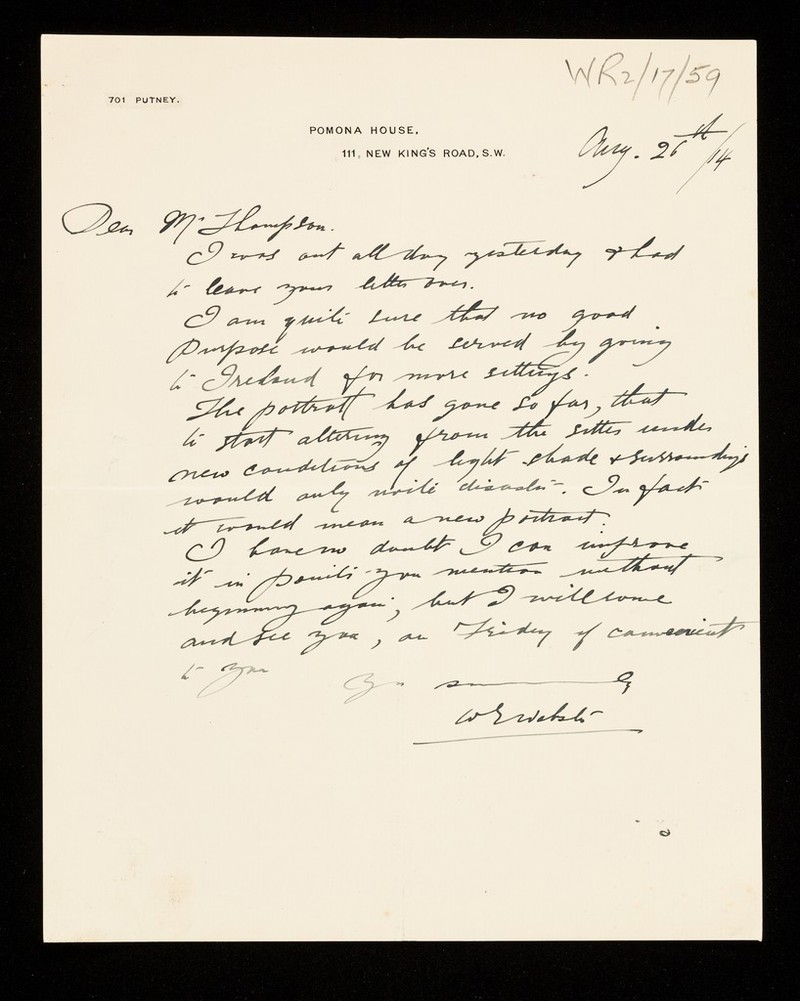 WR2/17/59
701 PUTNEY.
POMONA HOUSE,
111, NEW KING'S ROAD, S.W.
Aug. 26th/14
Dear Mr Thompson.
I was out all day yesterday & had
to leave your letter over.
I am quite sure that no good
Purpose would be served by going
to Ireland for more sittings.
The portrait has gone so far, that
to start altering from the sitter under
new conditions of light shade & surroundings
would only invite disaster. In fact
it would mean a new portrait.
I have no doubt I can improve
it in points you mention without
beginning again, but I will come
and see you, on Friday if convenient
to you
Yrs sincerely
W E Webster